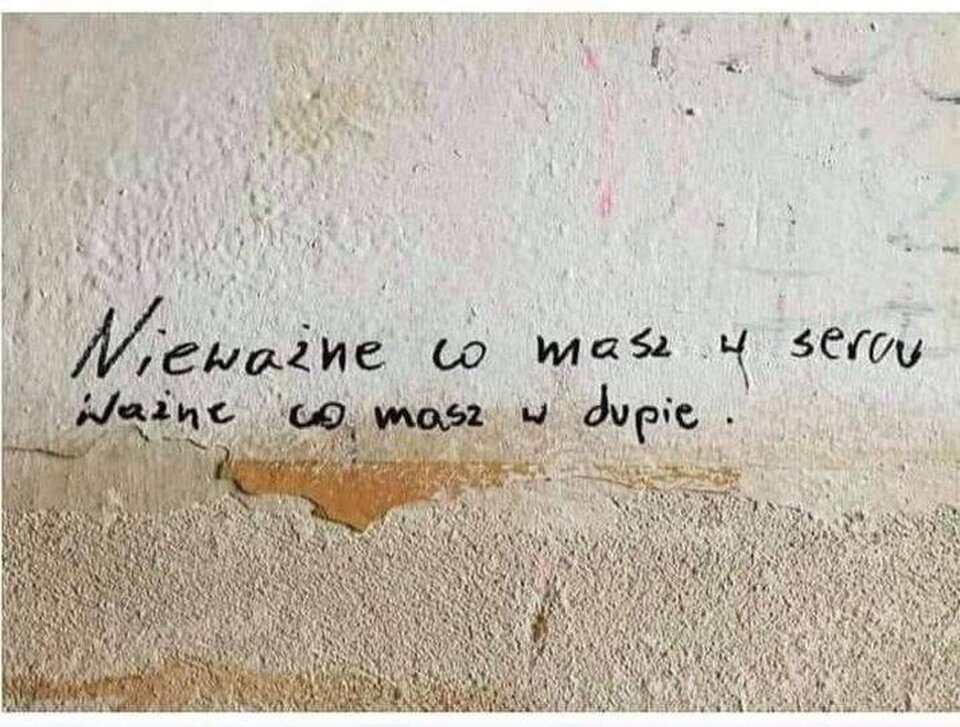 Nieważne co masz w sercu
ważne co masz w dupie.